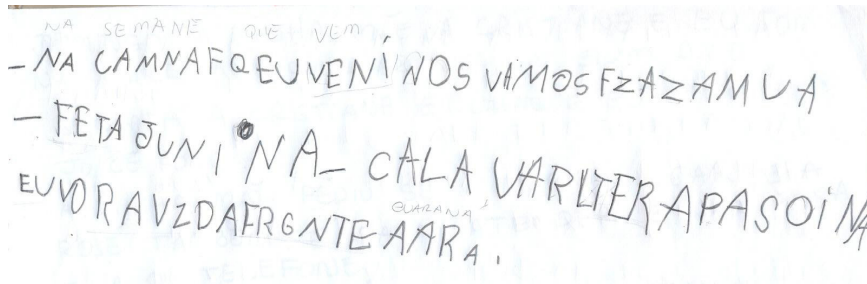 NA SEMANE QUE VEM
- NA CAMNAFQEUVENÍ NOS VAMOS FZAZAMUA
- FETA JUNINA - CALA VAR LTER APASOINA
EUVORAVZDAFRGNTE AARA.
GUARANÁ